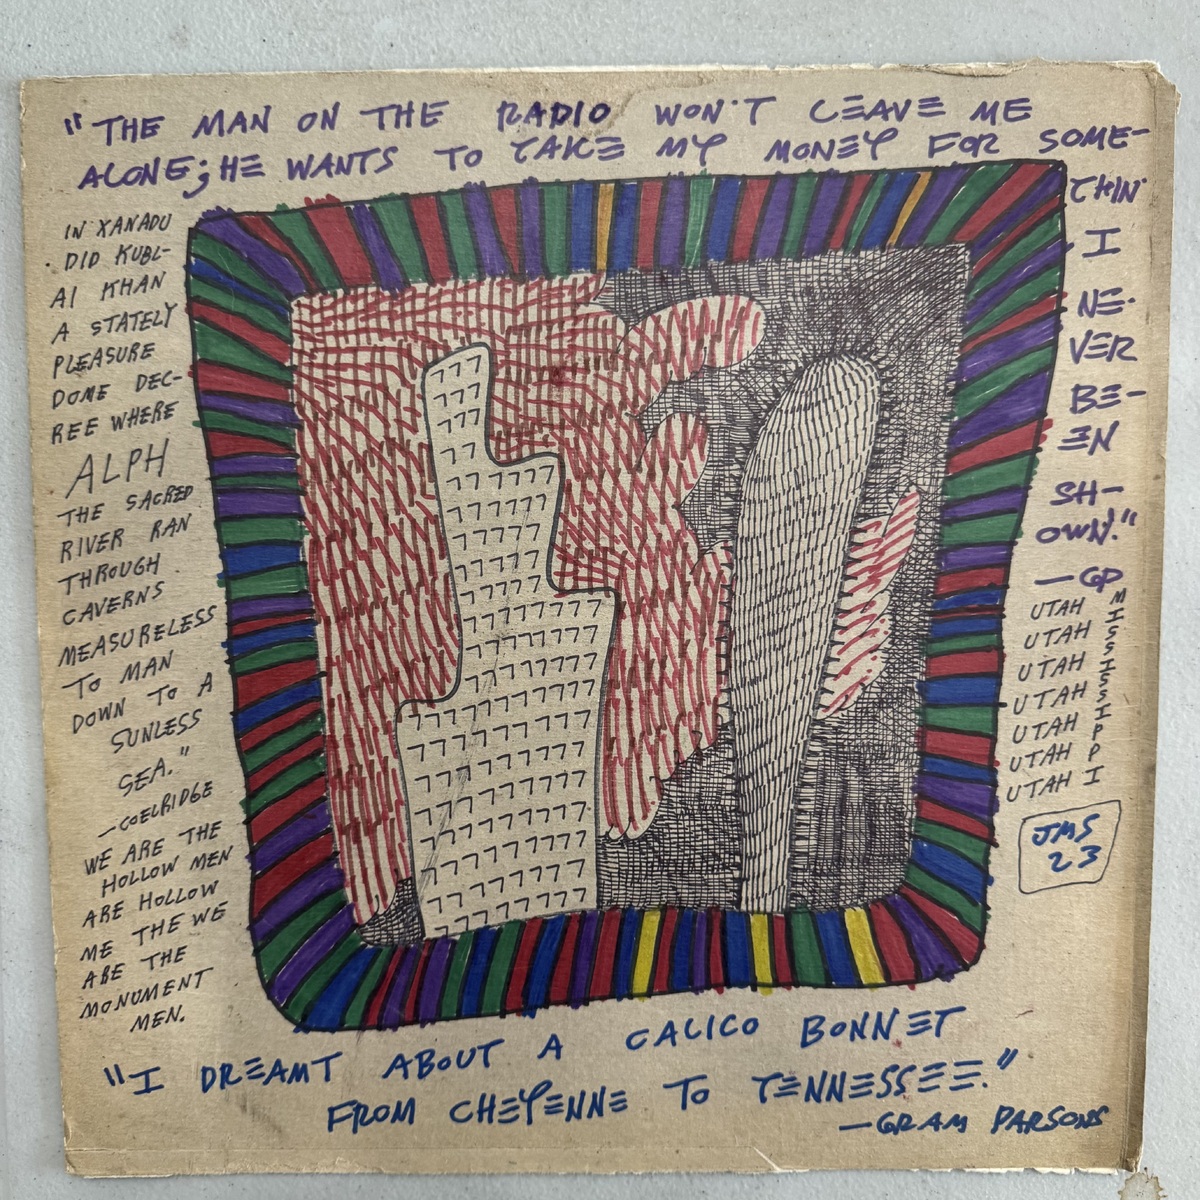 "THE MAN ON THE RADIO WON'T LEAVE ME
ALONE; HE WANTS TO TAKE MY MONEY FOR SOME-
THIN'
I
NE-
VER
BE-
EN
SH-
OWN."
—GP
IN XANADU
DID KUBL-
AI KHAN
A STATELY
PLEASURE
DOME DEC-
REE WHERE
ALPH
THE SACRED
RIVER RAN
THROUGH
CAVERNS
MEASURELESS
TO MAN
DOWN TO A
SUNLESS
SEA."
—COELRIDGE
WE ARE THE
HOLLOW MEN
ARE HOLLOW
ME THE WE
ARE THE
MONUMENT
MEN.
UTAH
UTAH
UTAH
UTAH
UTAH
UTAH
UTAH
MISSISSIPPI
JMS
23
777
777
777
77
77777
"I DREAMT ABOUT A CALICO BONNET
FROM CHEYENNE TO TENNESSEE."
—GRAM PARSONS